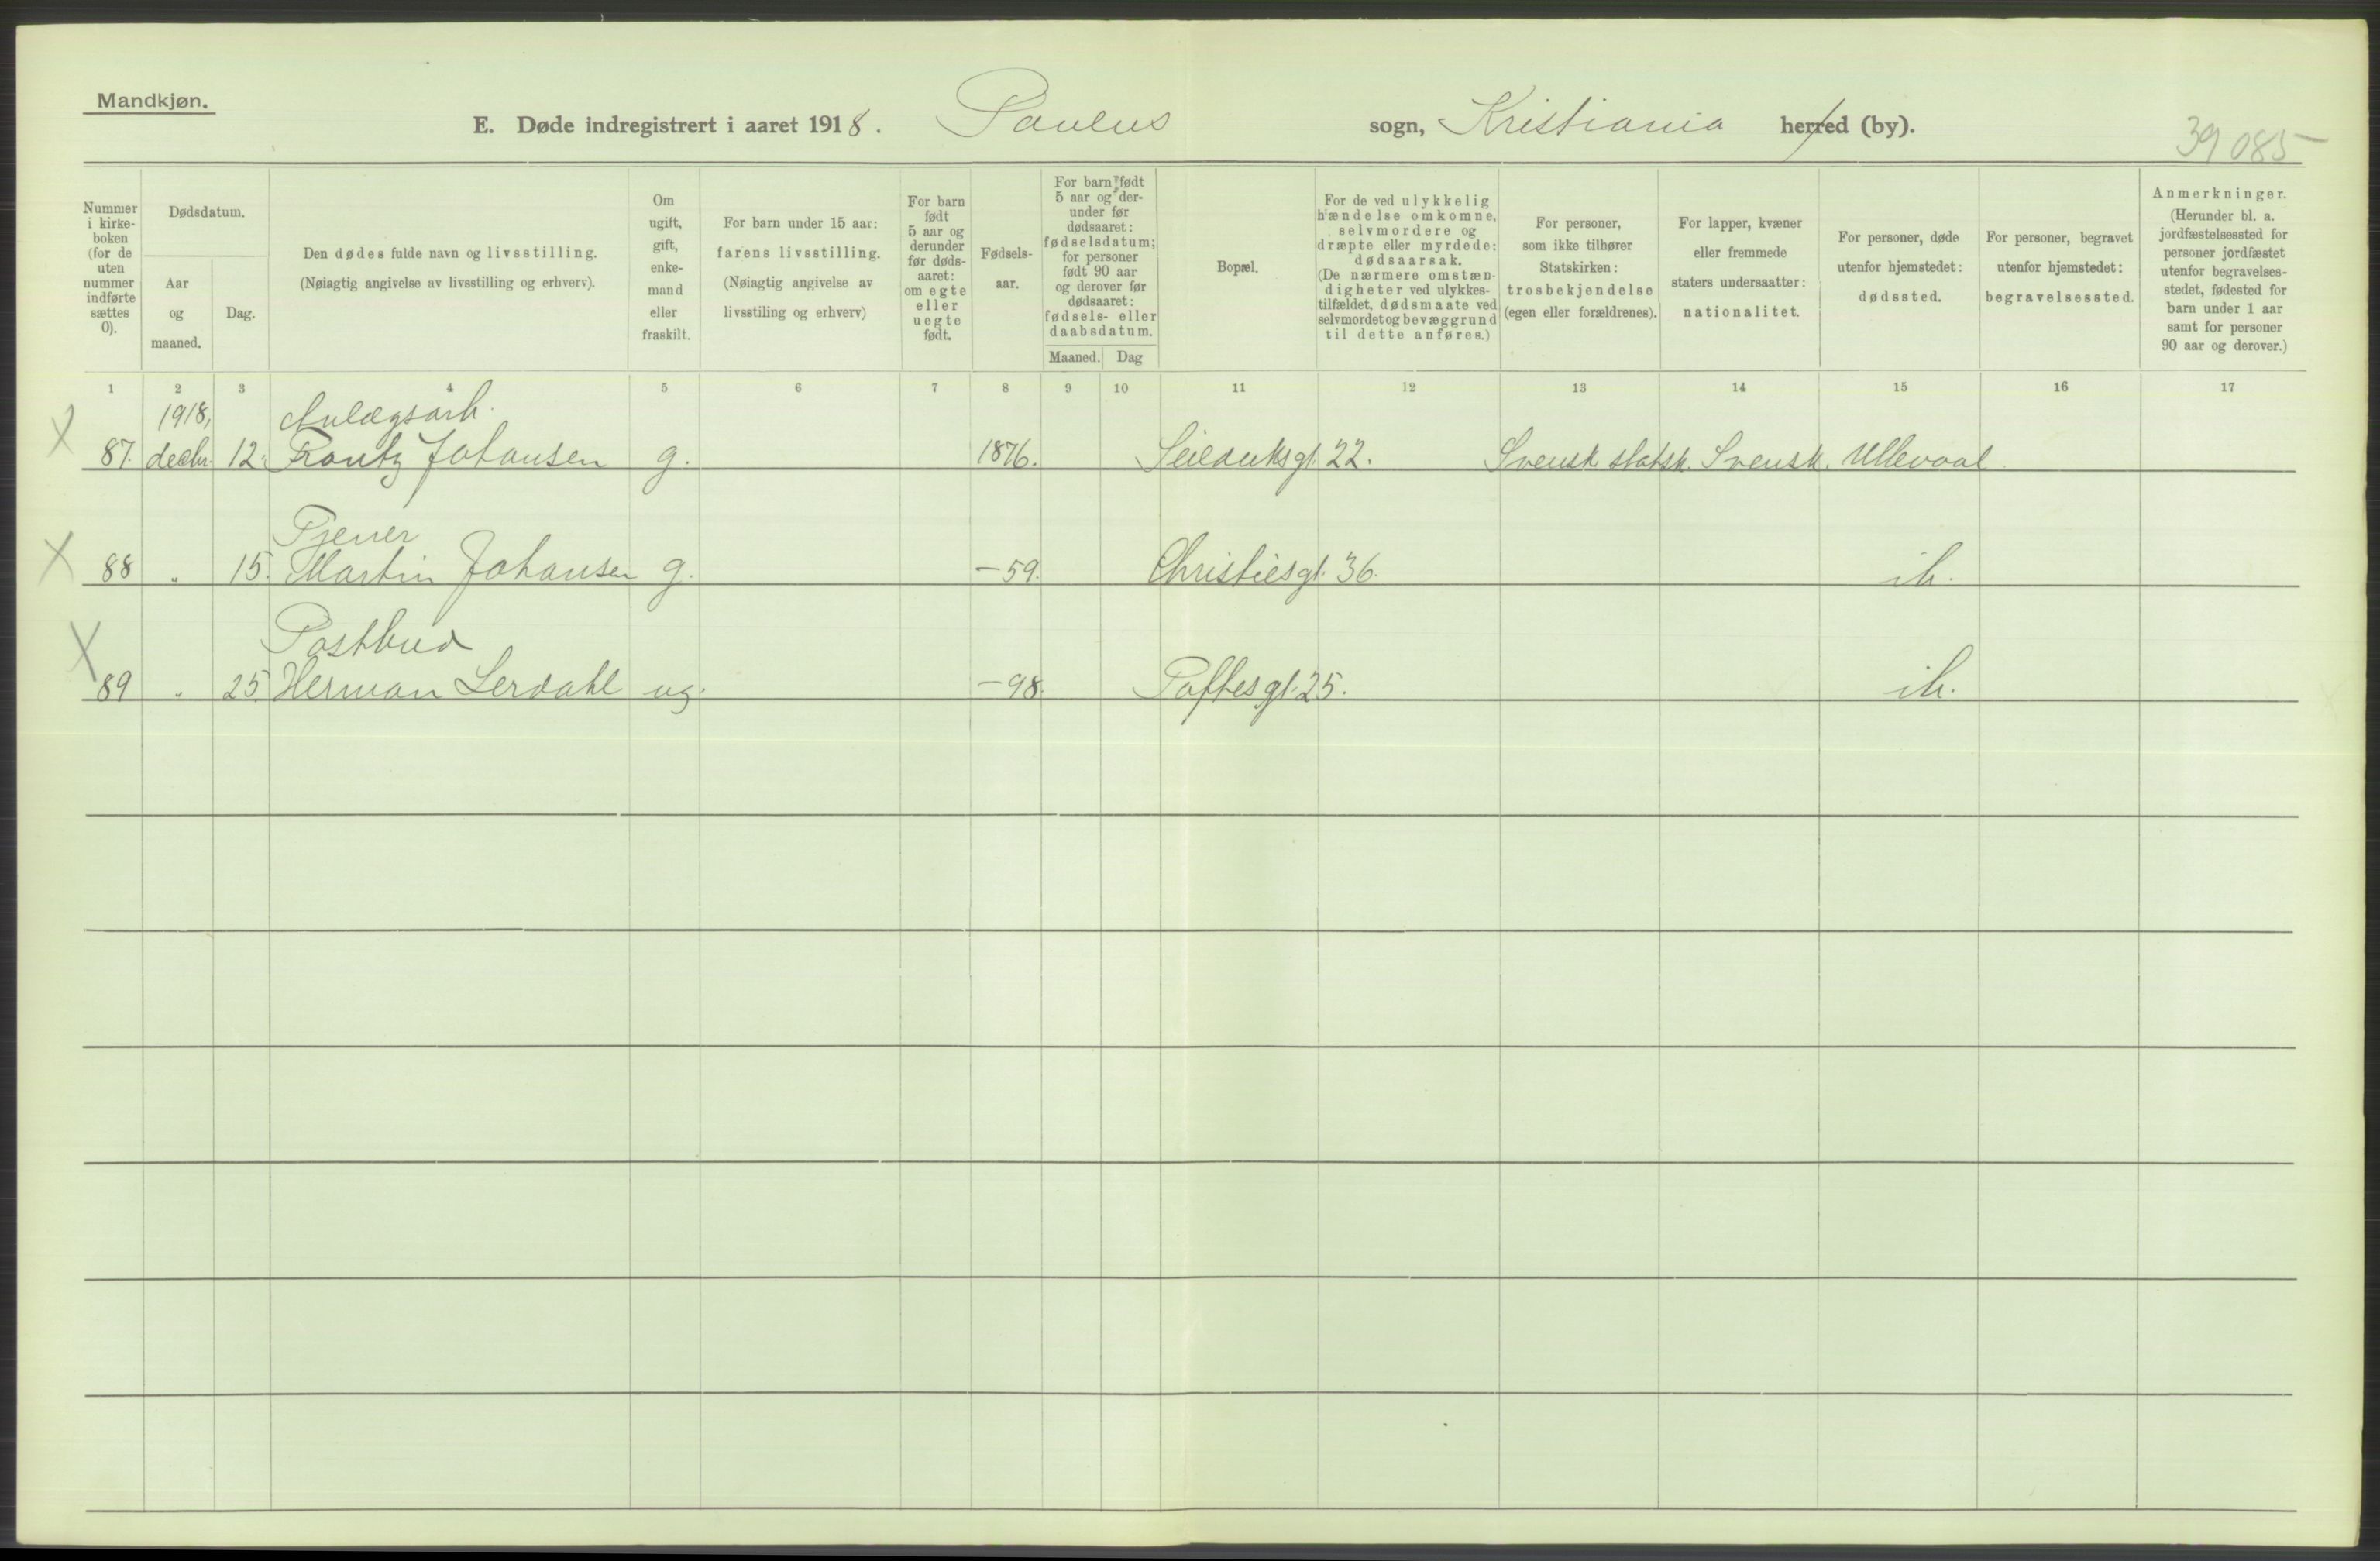 Mandkjøn.
E. Døde indregistrert i aaret 1918. Paulus sogn, Kristiania herred (by).
39085
Nummer i kirkeboken (for de uten nummer indførte sættes 0).
Dødsdatum.
Aar og maaned.
Dag.
Den dødes fulde navn og livsstilling.
(Nøiagtig angivelse av livsstilling og erhverv).
Om ugift, gift, enkemand eller fraskilt.
For barn under 15 aar: farens livsstilling.
(Nøiagtig angivelse av livsstiling og erhverv)
For barn født 5 aar og derunder før dødsaaret: om egte eller uegte født.
Fødselsaar.
For barn født 5 aar og derunder før dødsaaret: fødselsdatum; for personer født 90 aar og derover før dødsaaret: fødsels- eller daabsdatum.
Maaned. Dag
Bopæl.
For de ved ulykkelig hændelse omkomne, selvmordere og dræpte eller myrdede: dødsaarsak.
(De nærmere omstændigheter ved ulykkestilfældet, dødsmaate ved selvmordet og bevæggrund til dette anføres.)
For personer, som ikke tilhører Statskirken: trosbekjendelse (egen eller forældrenes).
For lapper, kvæner eller fremmede staters undersaatter: nationalitet.
For personer, døde utenfor hjemstedet: dødssted.
For personer, begravet utenfor hjemstedet: begravelsessted.
Anmerkninger.
(Herunder bl. a. jordfæstelsessted for personer jordfæstet utenfor begravelsesstedet, fødested for barn under 1 aar samt for personer 90 aar og derover.)
1 2 3 4 5 6 7 8 9 10 11 12 13 14 15 16 17
1918, Anlægsarb.
X 87. decbr. 12. Frantz Johansen g. 1876. Seilduksgt. 22. Svensk statsk. Svensk. Ullevaal
Tjener
X 88 " 15. Martin Johansen g. -59. Christiesgt. 36. ih.
Postbud
X 89 " 25. Herman Lerdahl ug. -98. Toftesgt. 25. ih.